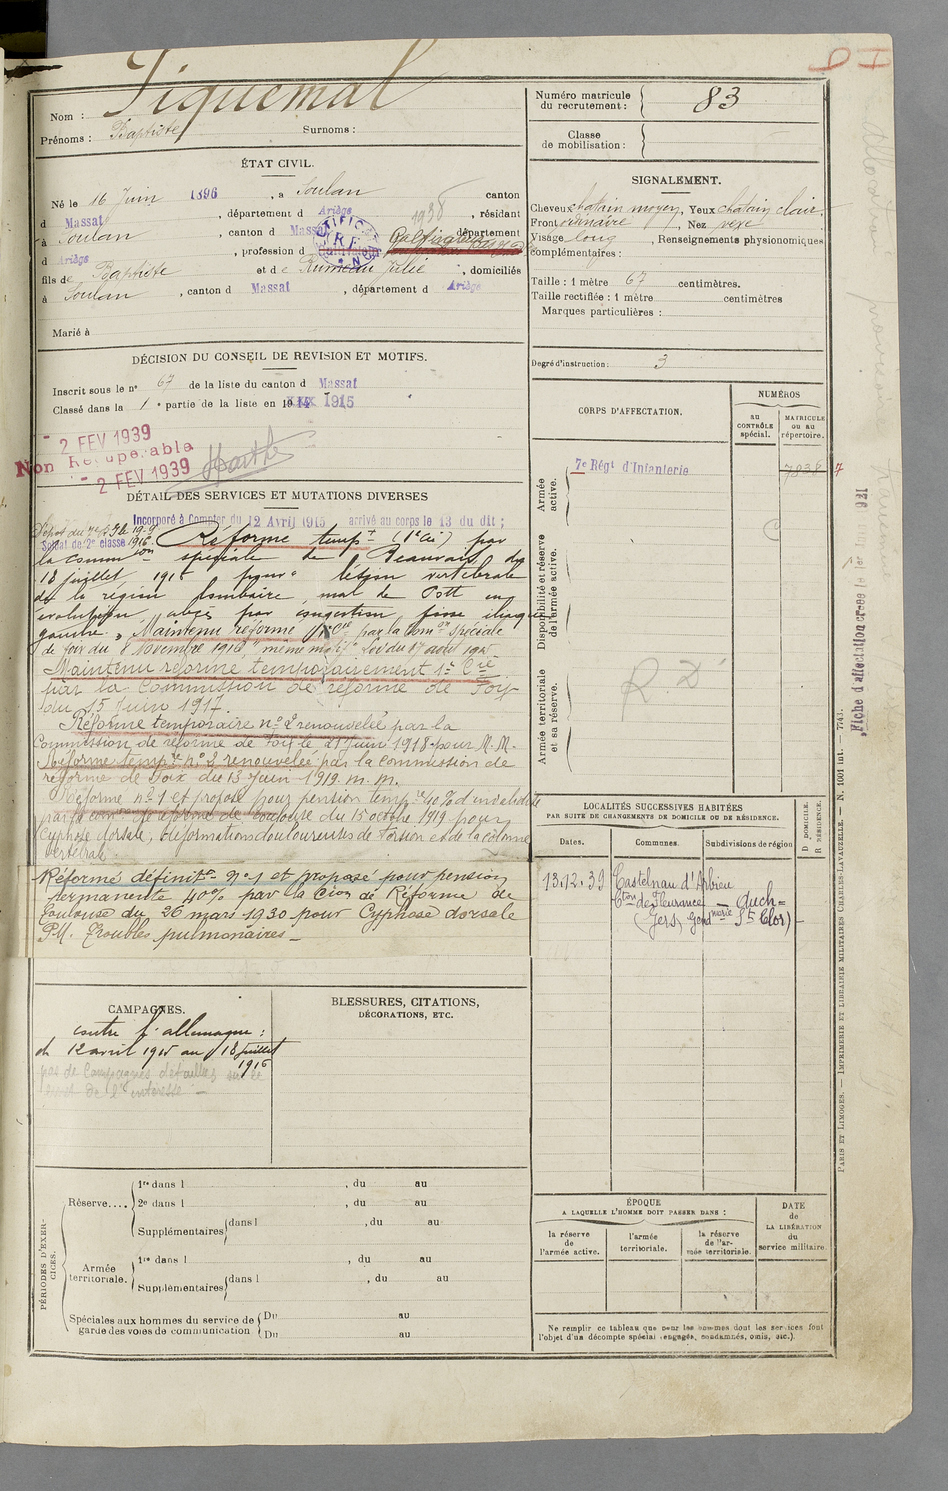 Nom : Piquemal
Prénoms : Baptiste Surnoms :
Numéro matricule du recrutement : 83
Classe de mobilisation :
ÉTAT CIVIL.
Né le 16 Juin 1896, à Soulan canton
d Massat, département d Ariège, résidant
à Soulan, canton d Massat, département
d Ariège, profession d
fils de Baptiste et de Rumeau Julie, domiciliés
à Soulan, canton d Massat, département d Ariège
Marié à
SIGNALEMENT.
Cheveux chatain moyen, Yeux chatain clair.
Front ordinaire, Nez
Visage long, Renseignements physionomiques
complémentaires :
Taille : 1 mètre 67 centimètres.
Taille rectifiée : 1 mètre centimètres
Marques particulières :
Degré d'instruction : 3
DÉCISION DU CONSEIL DE REVISION ET MOTIFS.
Inscrit sous le n° 67 de la liste du canton d Massat
Classé dans la 1e partie de la liste en 1915
- 2 FEV 1939
Non Récupérable
- 2 FEV 1939
CORPS D'AFFECTATION.
NUMÉROS
au CONTRÔLE spécial.
MATRICULE ou au répertoire.
Armée active.
7e Régt d'Infanterie
7838
Disponibilité et réserve de l'armée active.
Armée territoriale et sa réserve.
DÉTAIL DES SERVICES ET MUTATIONS DIVERSES
Incorporé à Compter du 12 Avril 1915 arrivé au corps le 13 du dit ;
Soldat de 2e classe
Réforme tempre (1e Cie) par
la commion spéciale de Beauvais du
18 juillet 1916 pour " lésion vertébrale
de la région lombaire, mal de Pott en
évolution, abcès par congestion fosse iliaque
gauche ". Maintenu réformé par la comon spéciale
de foix du 8 Novembre 1916, même motif loi du 17 août 1915
Maintenu réformé temporairement 1e Cie
par la Commission de réforme de Foix
du 15 Juin 1917.
Réforme temporaire n° 2 renouvelée par la
Commission de réforme de Foix le 21 Juin 1918 pour M.M.
Réforme tempre n° 2 renouvelée par la commission de
réforme de Foix du 13 Juin 1919. m. m.
Réforme n° 1 et proposé pour pension tempre 40% d'invalidité
par la comon de réforme de Toulouse du 15 octbre 1919 pour
Cyphose dorsale, déformation douloureuse de torsion de la colonne
vertébrale.
Réformé définitt n° 1 et proposé pour pension
permanente 40% par la Cion de Réforme de
Toulouse du 26 mars 1930 pour Cyphose dorsale
P.M. Troubles pulmonaires
LOCALITÉS SUCCESSIVES HABITÉES
PAR SUITE DE CHANGEMENTS DE DOMICILE OU DE RÉSIDENCE.
Dates. Communes. Subdivisions de région
D DOMICILE. R RÉSIDENCE.
13.12.39 Castelnau d'Arbieu
Cton de Fleurance - Auch =
(Gers, Gendmerie St Clar)
CAMPAGNES.
contre l'allemagne :
du 12 avril 1915 au 18 juillet
1916
pas de Campagnes détaillées sur le
livret de l'intéressé -
BLESSURES, CITATIONS,
DÉCORATIONS, ETC.
PÉRIODES D'EXERCICES.
Réserve....
1re dans l , du au
2e dans l , du au
Supplémentaires dans l , du au
Armée territoriale.
1re dans l , du au
Supplémentaires dans l , du au
Spéciales aux hommes du service de garde des voies de communication
Du au
Du au
ÉPOQUE
A LAQUELLE L'HOMME DOIT PASSER DANS :
la réserve de l'armée active.
l'armée territoriale.
la réserve de l'armée territoriale.
DATE de LA LIBÉRATION du service militaire.
Ne remplir ce tableau que pour les hommes dont les services font
l'objet d'un décompte spécial (engagés, condamnés, omis, etc.).
Fiche d'affectation créée le 1er 1921
PARIS ET LIMOGES. — IMPRIMERIE ET LIBRAIRIE MILITAIRES CHARLES-LAVAUZELLE. — N. 1001 int. 7743.